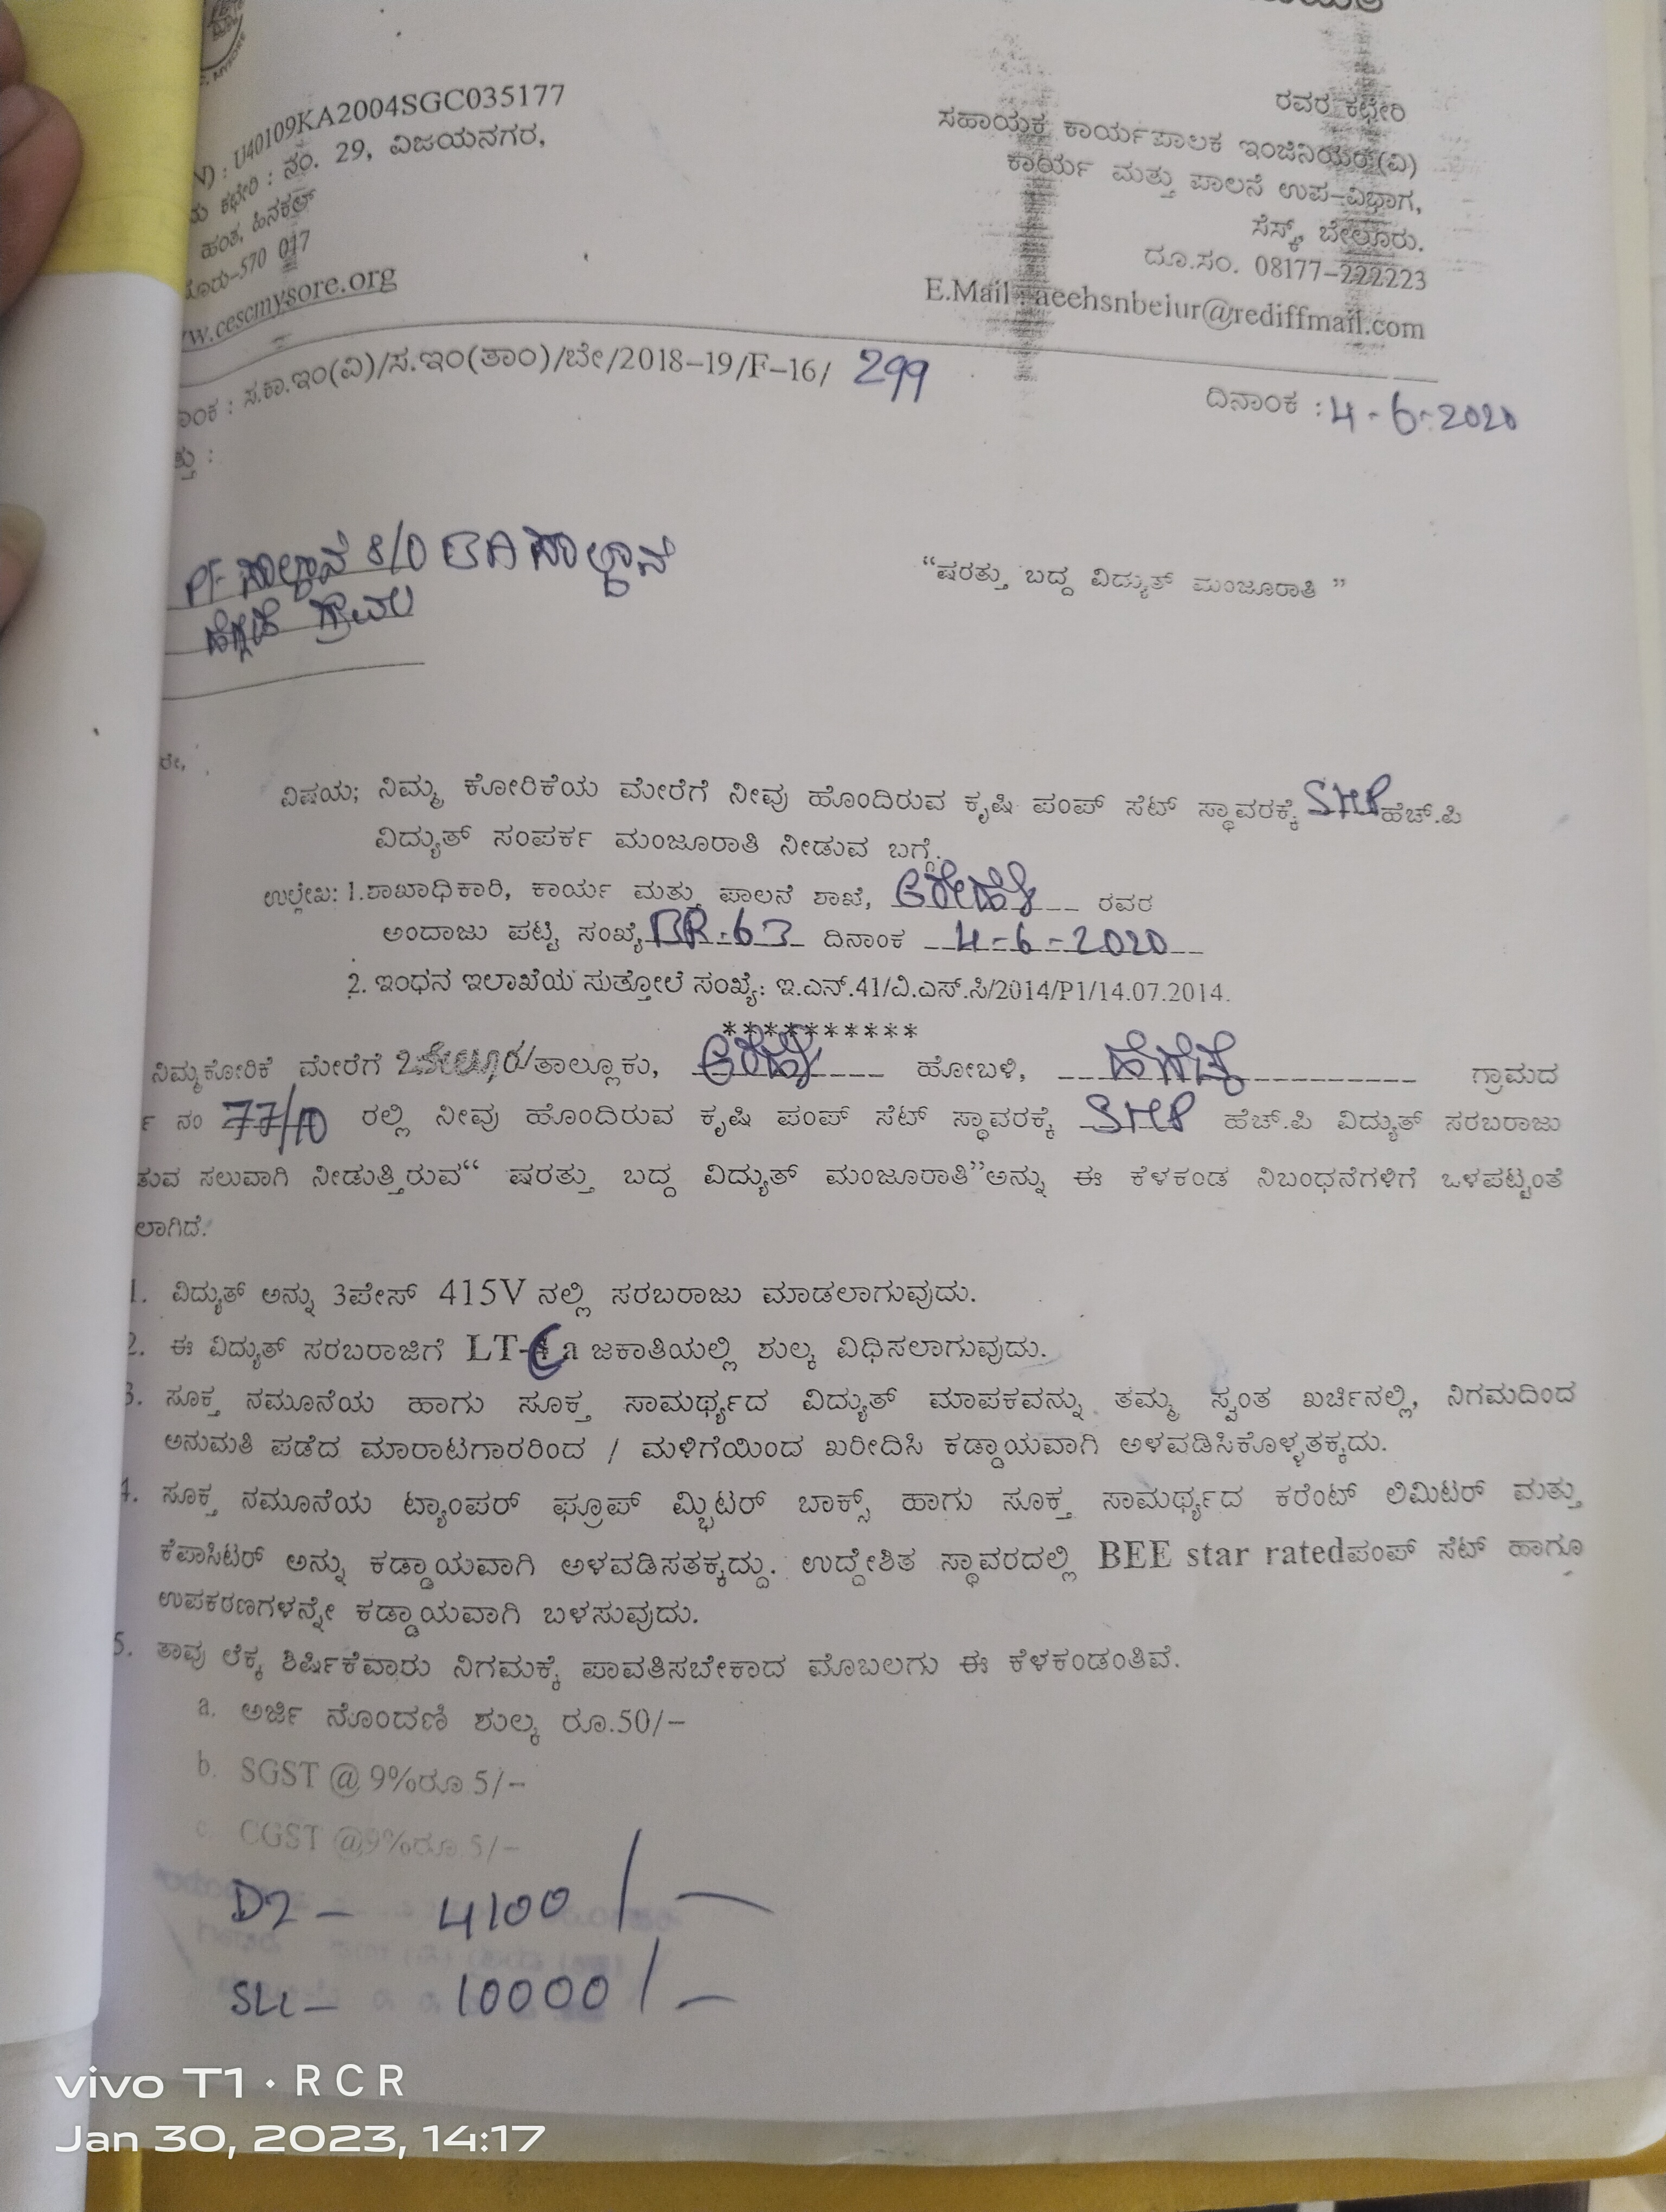 MYSORE
U40109KA2004SGC035177
ಕಛೇರಿ : ನಂ. 29, ವಿಜಯನಗರ,
ಹಂತ, ಹಿನಕಲ್
570 017
cescmysore.org
ರವರ ಕಛೇರಿ
ಸಹಾಯಕ ಕಾರ್ಯಪಾಲಕ ಇಂಜಿನಿಯರ್(ವಿ)
ಕಾರ್ಯ ಮತ್ತು ಪಾಲನೆ ಉಪ-ವಿಭಾಗ,
ಸೆಸ್ಕ್, ಬೇಲೂರು.
ದೂ.ಸಂ. 08177-222223
E.Mail : aeehsnbelur@rediffmail.com
: ಸ.ಕಾ.ಇಂ(ವಿ)/ಸ.ಇಂ(ತಾಂ)/ಬೇ/2018-19/F-16/ 299
ದಿನಾಂಕ : 4-6-2020
PF S/O
ಗ್ರಾಮ
“ಷರತ್ತು ಬದ್ದ ವಿದ್ಯುತ್ ಮಂಜೂರಾತಿ ”
ವಿಷಯ; ನಿಮ್ಮ ಕೋರಿಕೆಯ ಮೇರೆಗೆ ನೀವು ಹೊಂದಿರುವ ಕೃಷಿ ಪಂಪ್ ಸೆಟ್ ಸ್ಥಾವರಕ್ಕೆ 5HP ಹೆಚ್.ಪಿ
ವಿದ್ಯುತ್ ಸಂಪರ್ಕ ಮಂಜೂರಾತಿ ನೀಡುವ ಬಗ್ಗೆ.
ಉಲ್ಲೇಖ: 1.ಶಾಖಾಧಿಕಾರಿ, ಕಾರ್ಯ ಮತ್ತು ಪಾಲನೆ ಶಾಖೆ, ಅರೇಹಳ್ಳಿ ರವರ
ಅಂದಾಜು ಪಟ್ಟಿ ಸಂಖ್ಯೆ BR-63 ದಿನಾಂಕ 4-6-2020
2. ಇಂಧನ ಇಲಾಖೆಯ ಸುತ್ತೋಲೆ ಸಂಖ್ಯೆ: ಇ.ಎನ್.41/ವಿ.ಎಸ್.ಸಿ/2014/P1/14.07.2014.
**********
ನಿಮ್ಮಕೋರಿಕೆ ಮೇರೆಗೆ ಬೇಲೂರು ತಾಲ್ಲೂಕು, ಅರೇಹಳ್ಳಿ ಹೋಬಳಿ, ಗ್ರಾಮದ
ನಂ 77/10 ರಲ್ಲಿ ನೀವು ಹೊಂದಿರುವ ಕೃಷಿ ಪಂಪ್ ಸೆಟ್ ಸ್ಥಾವರಕ್ಕೆ 5HP ಹೆಚ್.ಪಿ ವಿದ್ಯುತ್ ಸರಬರಾಜು
ಸಲುವಾಗಿ ನೀಡುತ್ತಿರುವ“ ಷರತ್ತು ಬದ್ದ ವಿದ್ಯುತ್ ಮಂಜೂರಾತಿ”ಅನ್ನು ಈ ಕೆಳಕಂಡ ನಿಬಂಧನೆಗಳಿಗೆ ಒಳಪಟ್ಟಂತೆ
ಲಾಗಿದೆ.
1. ವಿದ್ಯುತ್ ಅನ್ನು 3ಪೇಸ್ 415V ನಲ್ಲಿ ಸರಬರಾಜು ಮಾಡಲಾಗುವುದು.
2. ಈ ವಿದ್ಯುತ್ ಸರಬರಾಜಿಗೆ LT-4 a ಜಕಾತಿಯಲ್ಲಿ ಶುಲ್ಕ ವಿಧಿಸಲಾಗುವುದು.
3. ಸೂಕ್ತ ನಮೂನೆಯ ಹಾಗು ಸೂಕ್ತ ಸಾಮರ್ಥ್ಯದ ವಿದ್ಯುತ್ ಮಾಪಕವನ್ನು ತಮ್ಮ ಸ್ವಂತ ಖರ್ಚಿನಲ್ಲಿ, ನಿಗಮದಿಂದ
ಅನುಮತಿ ಪಡೆದ ಮಾರಾಟಗಾರರಿಂದ / ಮಳಿಗೆಯಿಂದ ಖರೀದಿಸಿ ಕಡ್ಡಾಯವಾಗಿ ಅಳವಡಿಸಿಕೊಳ್ಳತಕ್ಕದು.
4. ಸೂಕ್ತ ನಮೂನೆಯ ಟ್ಯಾಂಪರ್ ಫ್ರೂಪ್ ಮ್ಭಿಟರ್ ಬಾಕ್ಸ್ ಹಾಗು ಸೂಕ್ತ ಸಾಮರ್ಥ್ಯದ ಕರೆಂಟ್ ಲಿಮಿಟರ್ ಮತ್ತು
ಕೆಪಾಸಿಟರ್ ಅನ್ನು ಕಡ್ಡಾಯವಾಗಿ ಅಳವಡಿಸತಕ್ಕದ್ದು. ಉದ್ದೇಶಿತ ಸ್ಥಾವರದಲ್ಲಿ BEE star ratedಪಂಪ್ ಸೆಟ್ ಹಾಗೂ
ಉಪಕರಣಗಳನ್ನೇ ಕಡ್ಡಾಯವಾಗಿ ಬಳಸುವುದು.
5. ತಾವು ಲೆಕ್ಕ ಶಿರ್ಷಿಕೆವಾರು ನಿಗಮಕ್ಕೆ ಪಾವತಿಸಬೇಕಾದ ಮೊಬಲಗು ಈ ಕೆಳಕಂಡಂತಿವೆ.
a. ಅರ್ಜಿ ನೊಂದಣಿ ಶುಲ್ಕ ರೂ.50/-
b. SGST @ 9%ರೂ 5/-
c. CGST @9%ರೂ 5/-
D2 - 4100/-
SLC - 10000/-
vivo T1 • RCR
Jan 30, 2023, 14:17